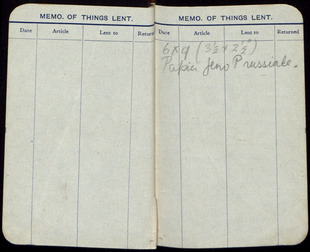 MEMO. OF THINGS LENT.
Date Article Lent to Return
MEMO. OF THINGS LENT.
Date Article Lent to Returned
6 x 9 (3½ x 2½")
Papier ferro Prussiate.